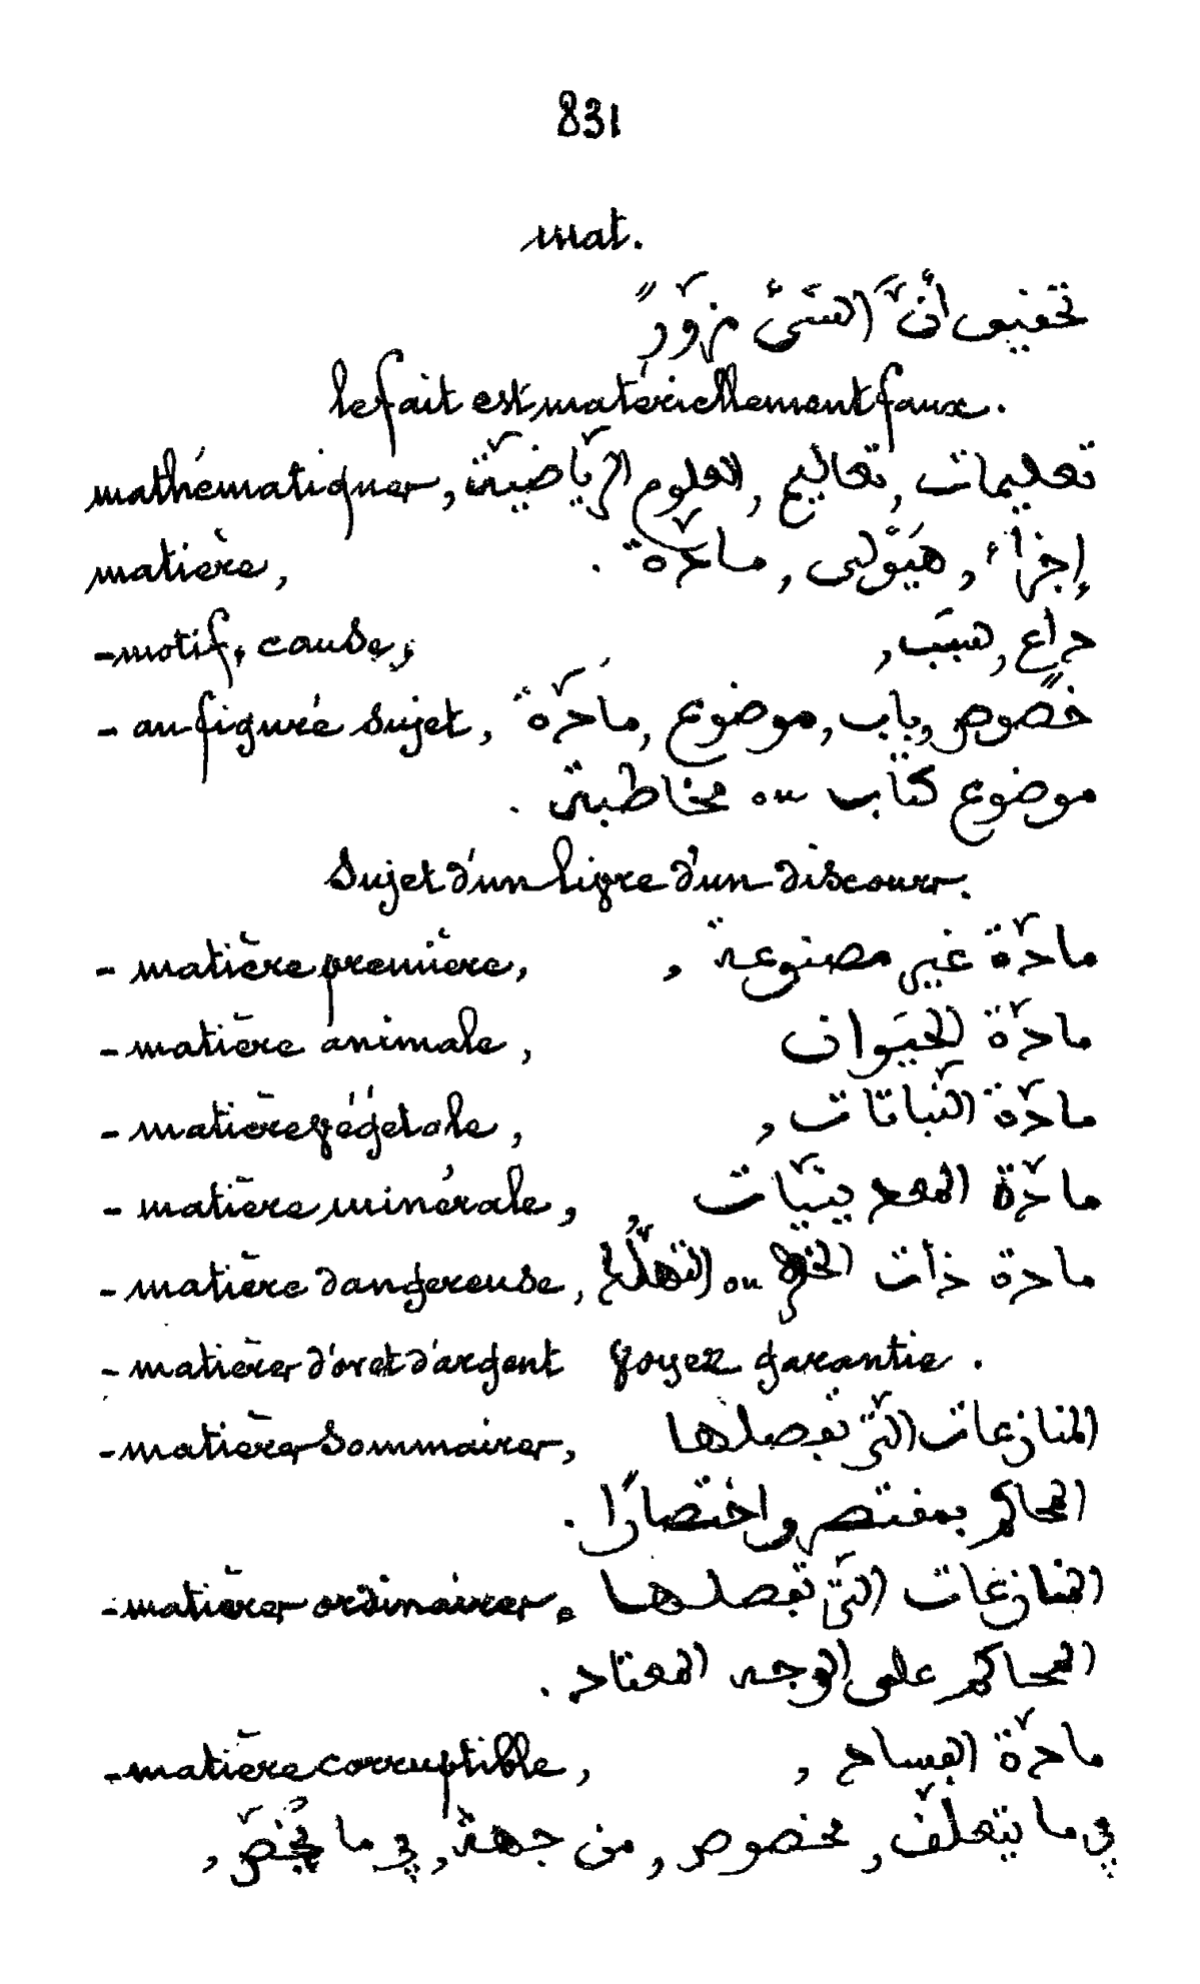 831
mat.
تحقيق أنَّ الشَّىْءَ مزوّرٌ
le fait est matériellement faux.
mathématiques, تعليمات, تعاليم, العلوم الرّياضيّة
matière, إجزاء, هَيُولى, مادّة.
- motif, cause, داع, سبَب,
- au figuré sujet, خصوص, باب, موضوع, مادّة
موضوع كتاب ou مخاطبة.
Sujet d'un livre d'un discours.
- matière première, مادّة غير مصنوعة,
- matière animale, مادّة الحيَوان
- matière végétale, مادّة النباتات,
- matière minérale, مادّة المعدينيّات,
- matière dangereuse, مادة ذات الخطر ou
- matières d'or et d'argent voyez garantie.
- matières sommaires, المنازعات الّتي تفصلها
المحاكم بمقتصر واختصارًا.
- matières ordinaires, المنازعات الّتي تفصلها
المحاكم على الوجه المعتاد.
- matière corruptible, مادّة الفساد,
في ما يتعلّق, بخصوص, من جهة, في ما يخُصّ,